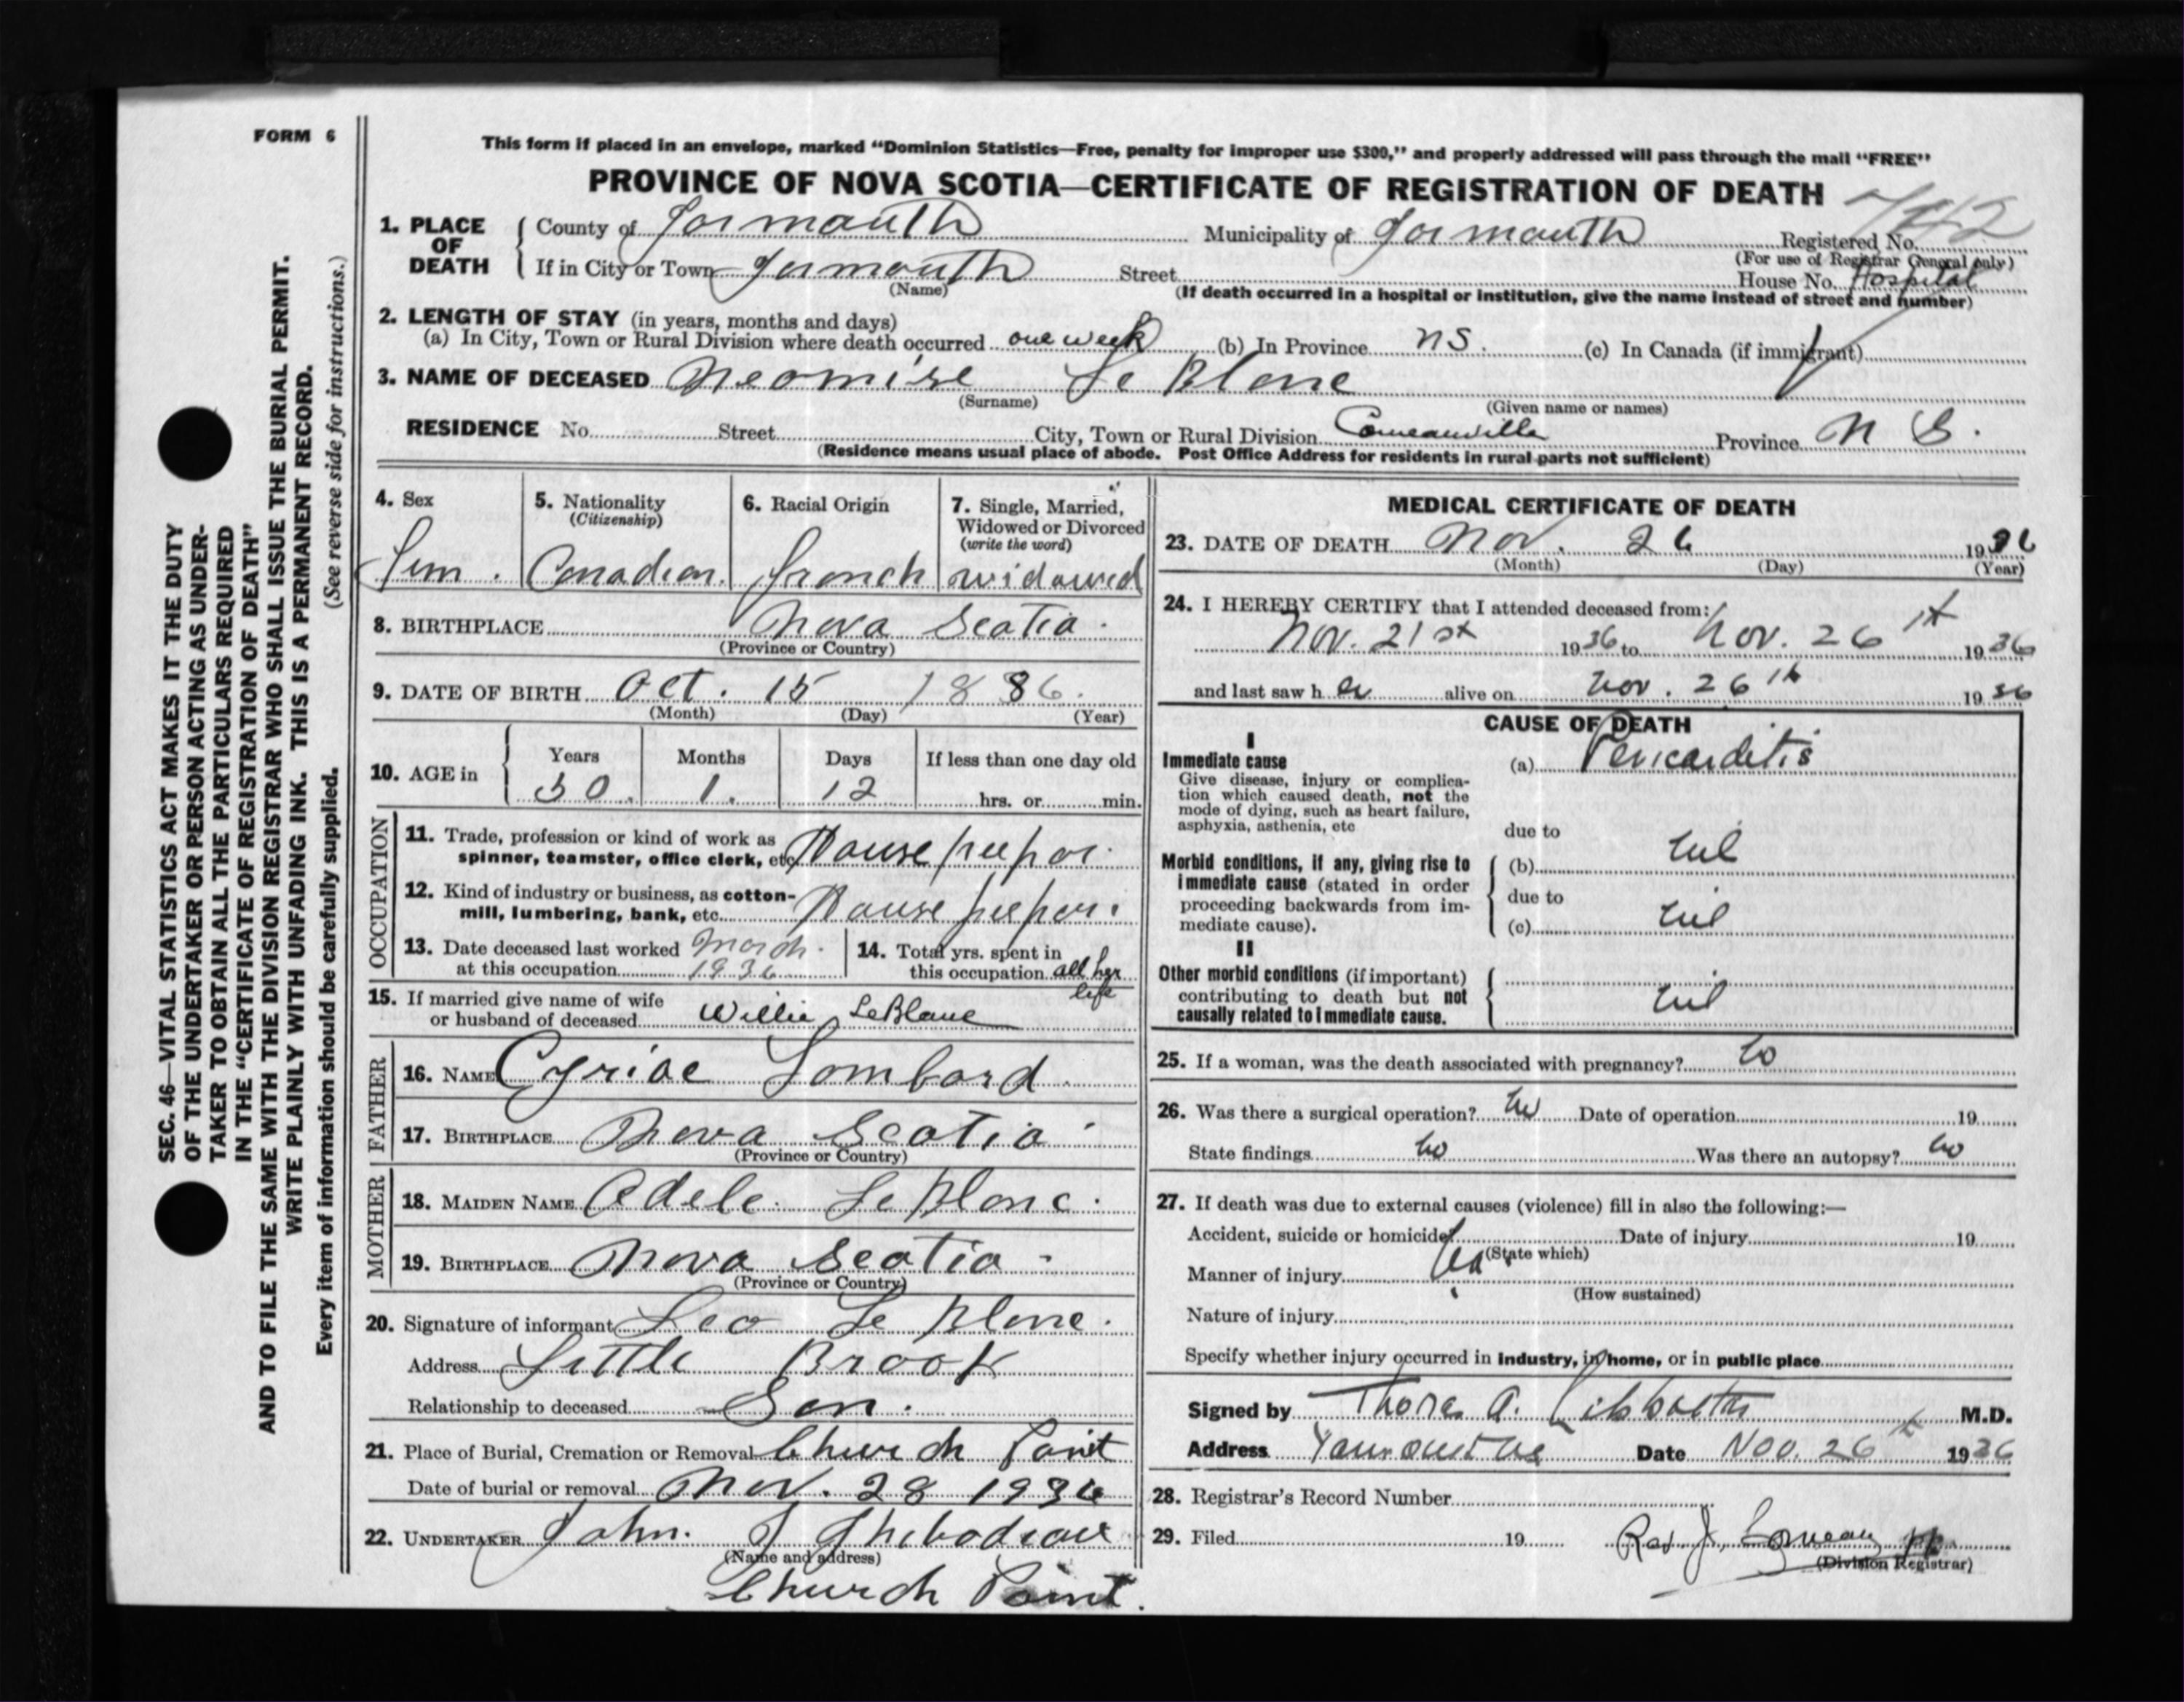 FORM 6
This form if placed in an envelope, marked “Dominion Statistics—Free, penalty for improper use $300,” and properly addressed will pass through the mail “FREE”
PROVINCE OF NOVA SCOTIA—CERTIFICATE OF REGISTRATION OF DEATH
1. PLACE OF DEATH
County of Yarmouth Municipality of Yarmouth Registered No.
(For use of Registrar General only)
If in City or Town Yarmouth Street House No. Hospital
(Name) (If death occurred in a hospital or institution, give the name instead of street and number)
2. LENGTH OF STAY (in years, months and days)
(a) In City, Town or Rural Division where death occurred one week (b) In Province NS. (c) In Canada (if immigrant)
3. NAME OF DECEASED Neomise Le Blanc
(Surname) (Given name or names)
RESIDENCE No. Street City, Town or Rural Division Comeauville Province N S.
(Residence means usual place of abode. Post Office Address for residents in rural parts not sufficient)
4. Sex Fem.
5. Nationality (Citizenship) Canadian.
6. Racial Origin French
7. Single, Married, Widowed or Divorced (write the word) widowed
8. BIRTHPLACE Nova Scotia.
(Province or Country)
9. DATE OF BIRTH Oct. 15 1886.
(Month) (Day) (Year)
10. AGE in Years 50. Months 1. Days 12 If less than one day old hrs. or min.
OCCUPATION
11. Trade, profession or kind of work as spinner, teamster, office clerk, etc. House keeper.
12. Kind of industry or business, as cotton-mill, lumbering, bank, etc. House keeper.
13. Date deceased last worked at this occupation March. 1936
14. Total yrs. spent in this occupation all her life
15. If married give name of wife or husband of deceased Willie LeBlanc
FATHER
16. NAME Cyriac Lombard.
17. BIRTHPLACE Nova Scotia
(Province or Country)
MOTHER
18. MAIDEN NAME Adele LeBlanc.
19. BIRTHPLACE Nova Scotia
(Province or Country)
20. Signature of informant Leo Le Blanc.
Address Little Brook
Relationship to deceased Son.
21. Place of Burial, Cremation or Removal Church Point
Date of burial or removal Nov. 28 1936
22. UNDERTAKER John. J Thibodeau
(Name and address)
Church Point.
MEDICAL CERTIFICATE OF DEATH
23. DATE OF DEATH Nov. 26 1936
(Month) (Day) (Year)
24. I HEREBY CERTIFY that I attended deceased from:
Nov. 21st 1936 to Nov. 26th 1936
and last saw her alive on Nov. 26th 1936
CAUSE OF DEATH
I
Immediate cause (a) Pericarditis
Give disease, injury or complication which caused death, not the mode of dying, such as heart failure, asphyxia, asthenia, etc
due to
Morbid conditions, if any, giving rise to immediate cause (stated in order proceeding backwards from immediate cause).
(b) nil
due to
(c) nil
II
Other morbid conditions (if important) contributing to death but not causally related to immediate cause. nil
25. If a woman, was the death associated with pregnancy? no
26. Was there a surgical operation? no Date of operation 19
State findings no Was there an autopsy? no
27. If death was due to external causes (violence) fill in also the following:—
Accident, suicide or homicide? no. Date of injury 19
(State which)
Manner of injury
(How sustained)
Nature of injury
Specify whether injury occurred in industry, in home, or in public place
Signed by A. M.D.
Address Yarmouth NS Date Nov. 26th 1936
28. Registrar's Record Number
29. Filed 19 Rev. J. Comeau
(Division Registrar)
SEC. 46—VITAL STATISTICS ACT MAKES IT THE DUTY
OF THE UNDERTAKER OR PERSON ACTING AS UNDER-
TAKER TO OBTAIN ALL THE PARTICULARS REQUIRED
IN THE “CERTIFICATE OF REGISTRATION OF DEATH”
AND TO FILE THE SAME WITH THE DIVISION REGISTRAR WHO SHALL ISSUE THE BURIAL PERMIT.
WRITE PLAINLY WITH UNFADING INK. THIS IS A PERMANENT RECORD.
Every item of information should be carefully supplied. (See reverse side for instructions.)